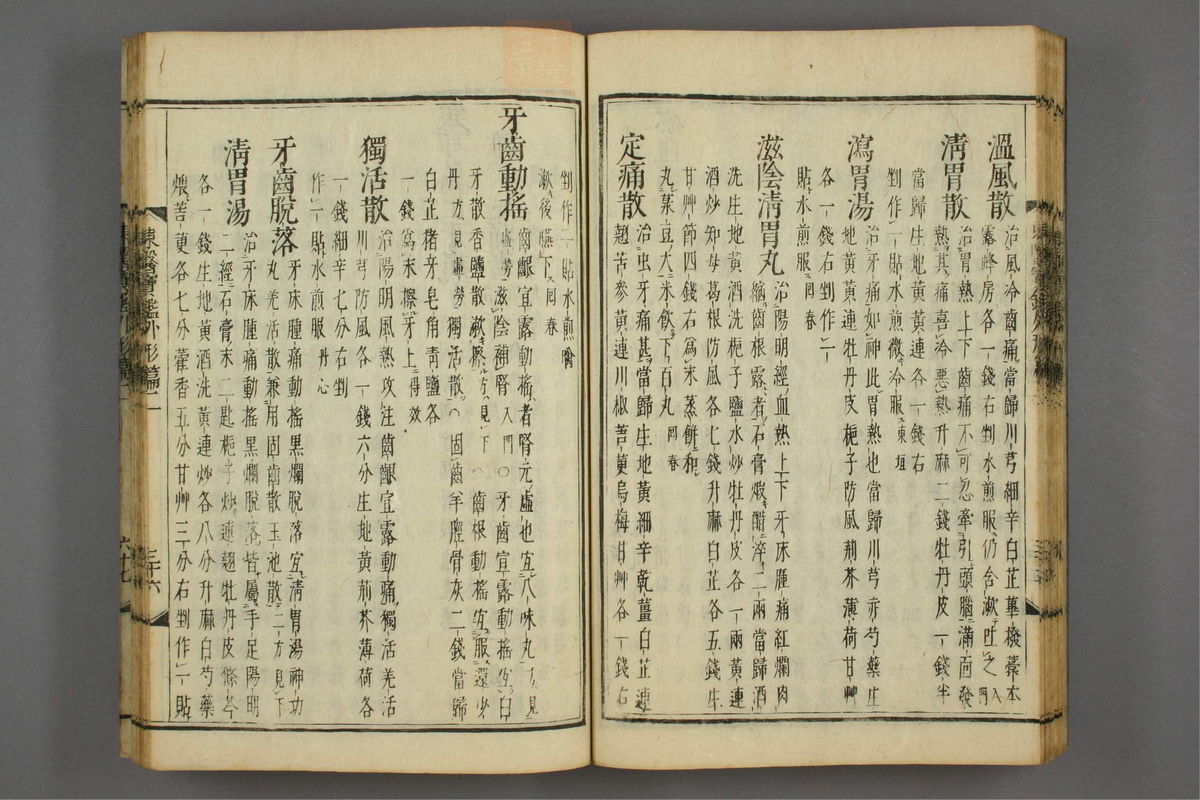 溫風散治風冷齒痛當歸川芎細辛白芷蓽撥藁本
露蜂房各一錢右剉水煎服仍含漱吐之入門
淸胃散治胃熱上下齒痛不可忍牽引頭腦滿面發
熱其痛喜冷惡熱升麻二錢牡丹皮一錢半
當歸生地黃黃連各一錢右
剉作一貼水煎微冷服東垣
瀉胃湯治牙痛如神此胃熱也當歸川芎赤芍藥生
地黃黃連牡丹皮梔子防風荊芥薄荷甘艸
各一錢右剉作一
貼水煎服回春
滋陰淸胃丸治陽明經血熱上下牙床腫痛紅爛肉
縮齒根露者石膏煆醋淬二兩當歸酒
洗生地黃酒洗梔子鹽水炒牡丹皮各一兩黃連
酒炒知母葛根防風各七錢升麻白芷各五錢生
甘艸節四錢右爲末蒸餠和
丸菉豆大米飮下百丸回春
定痛散治虫牙痛甚當歸生地黃細辛乾薑白芷連
翹苦參黃連川椒苦莄烏梅甘艸各一錢右
剉作一貼水煎噙
漱後嚥下回春
牙齒動搖齒齦宜露動搖者腎元虛也宜八味丸方見
虛勞滋陰補腎入門○牙齒宜露動搖宜白
牙散香鹽散漱擦方見下○齒根動搖宜服還少
丹方見虛勞獨活散○固齒羊脛骨灰二錢當歸
白芷猪牙皂角靑鹽各
一錢爲末擦牙上得效
獨活散治陽明風熱攻注齒齦宜露動痛獨活羌活
川芎防風各一錢六分生地黃荊芥薄荷各
一錢細辛七分右剉
作一貼水煎服丹心
牙齒脫落牙床腫痛動搖黑爛脫落宜淸胃湯神功
丸羌活散兼用固齒散玉池散二方見下
淸胃湯治牙床腫痛動搖黑爛脫落皆屬手足陽明
二經石膏末二匙梔子炒連翹牡丹皮條芩
各一錢生地黃酒洗黃連炒各八分升麻白芍藥
煨苦莄各七分藿香五分甘艸三分右剉作一貼
東醫寶鑑外形篇二
三十六